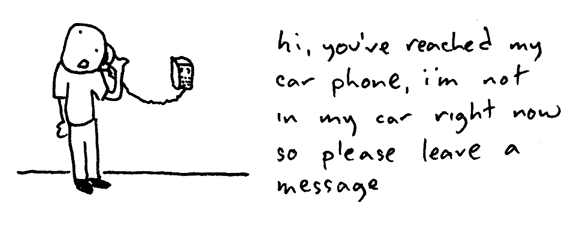 hi, you've reached my
car phone, i'm not
in my car right now
so please leave a
message